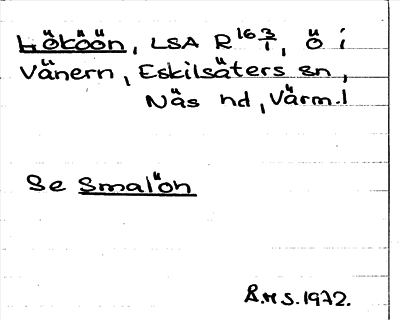 Lököön, LSA R 16 3/1, ö i
Vänern, Eskilsäters sn,
Näs hd, Värm.l
Se Smalön
Å.H S. 1972.